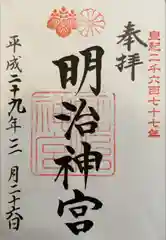 皇紀二千六百七十七年
奉拝
明治神宮
平成二十九年三月二十六日